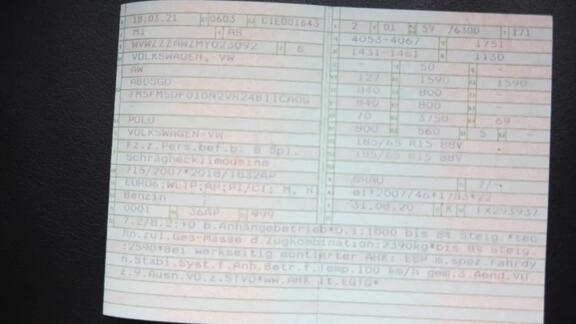 18.03.21 0603 CIE001643
M1 AB
WVWZZZAWZMY023092 6
VOLKSWAGEN, VW
AW
ABDSGD
POLO
VOLKSWAGEN-VW
Fz.z.Pers.bef.b. 8 Spl.
Schräghecklimousine
715/2007*2018/1832AP
EURO6;WLTP;AP;PI/CI; M, N
Benzin
0001 36AP 999
2 01 59 /6300 171
4053-4067 1751
1431-1461 1130
- 50 -
127 1590 1590
840 800
840 800 -
70 3750 69
900 560 5 -
185/65 R15 88V
185/65 R15 88V
GRAU 7/-
e1*2007/46*1783*22
31.08.20
7.2/8.2:*0 b.Anhängebetrieb*0.1:1000 bis 8% Steig.*tec
hn.zul.Ges-Masse d.Zugkombination:2390kg*bis 8% Steig.
:2590*Bei werkseitig montierter AHK: ESP m.spez.Fahrdy
n.Stabi.Syst.f.Anh.Betr.f.Temp.100 km/h gem.3.Aend.VO
z.9.Ausn.VO.z.StVO*ww.AHK lt.EGTG*